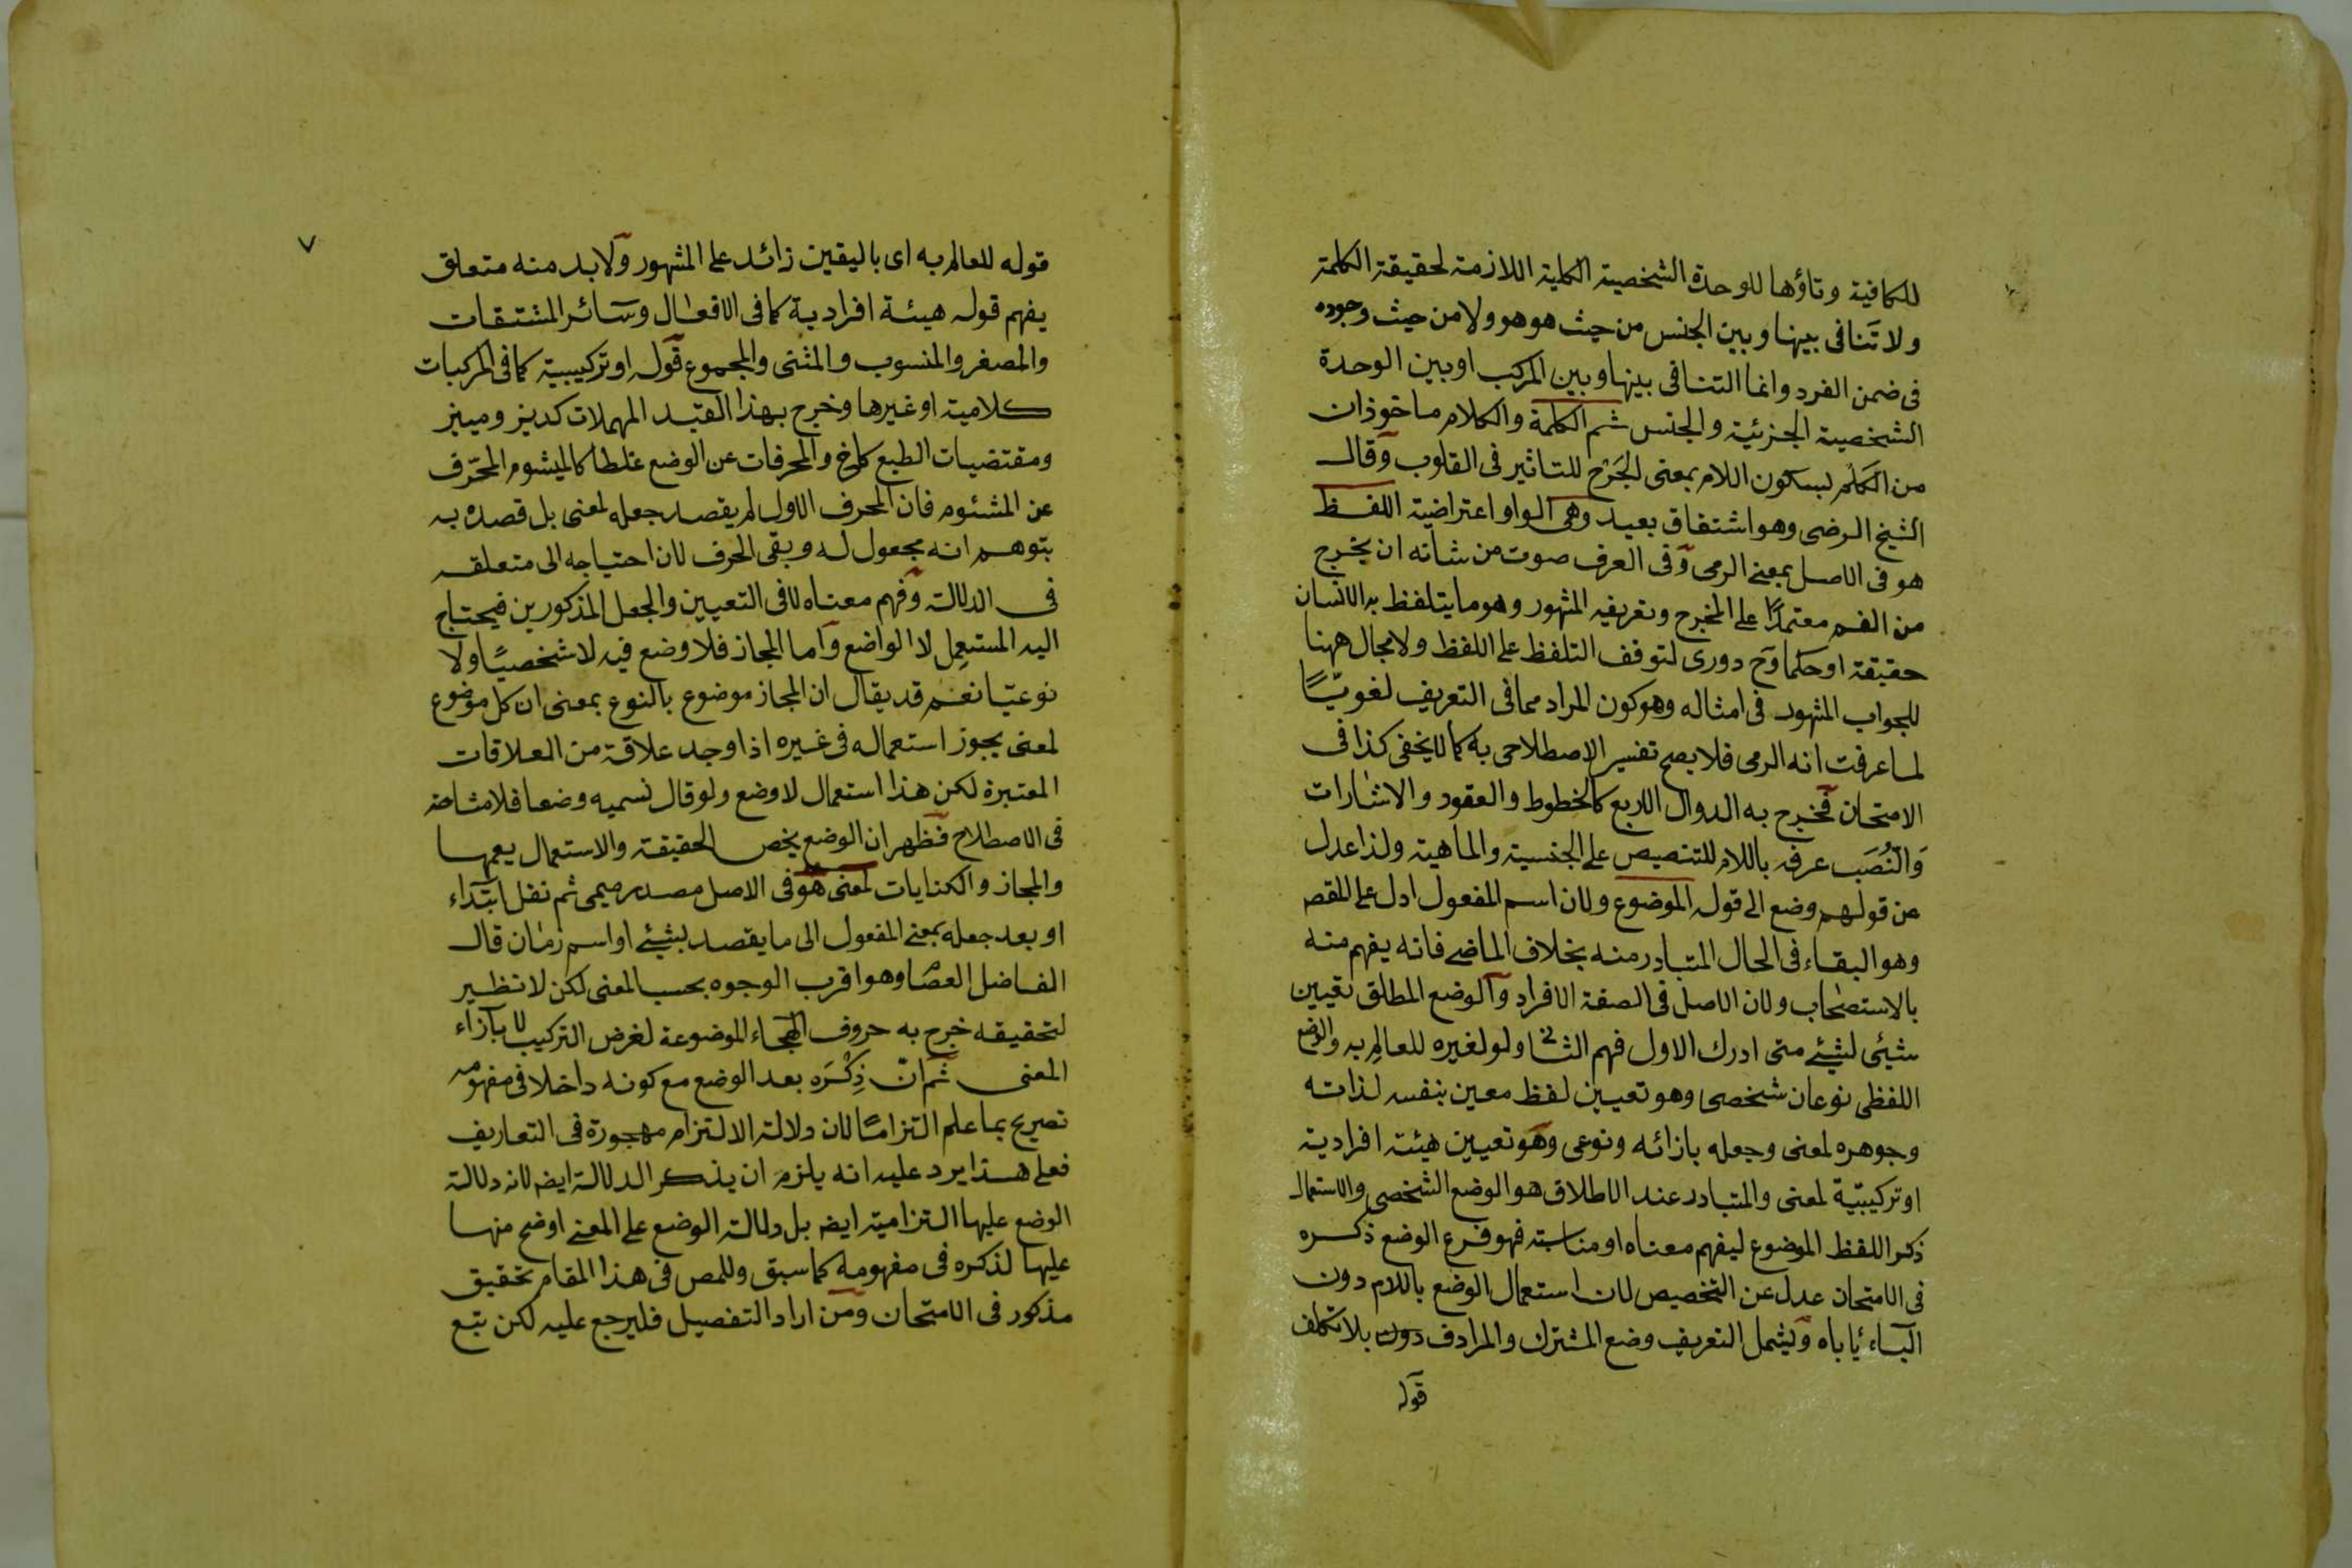 للكافية وتاؤها للوحدة الشخصية الكلية اللازمة لحقيقة الكلمة
ولا تنافى بينها وبين الجنس من حيث هو هو ولا من حيث وجوده
فى ضمن الفرد وانما التنافى بينها وبين المركب او بين الوحدة
الشخصية الجزئية والجنس ثم الكلمة والكلام ماخوذان
من الكَلْم بسكون اللام بمعنى الجَرْح للتاثير فى القلوب وقال
الشيخ الرضى وهو اشتقاق بعيد وهى الواو اعتراضية اللفظ
هو فى الاصل بمعنى الرمى وفى العرف صوت من شانه ان يخرج
من الفم معتمدًا على المخرج وتعريفه المشهور وهو ما يتلفظ به الانسان
حقيقة او حكما وح دورى لتوقف التلفظ على اللفظ ولا مجال ههنا
للجواب المشهود فى امثاله وهو كون المراد مما فى التعريف لغويّاً
لما عرفت انه الرمى فلا يصح تفسير الاصطلاحى به كما لا يخفى كذا فى
الامتحان فخرج به الدوال الاربع كالخطوط والعقود والاشارات
وَالنُّصَب عرفه باللام للتنصيص على الجنسية والماهية ولذا عدل
عن قولهم وضع الى قوله الموضوع ولان اسم المفعول ادل على المقصد
وهو البقاء فى الحال المتبادر منه بخلاف الماضى فانه يفهم منه
بالاستصحاب ولان الاصل فى الصفة الافراد وآلوضع المطلق تعيين
شيئ لشيئ متى ادرك الاول فهم الثانى ولو لغيره للعالِم به والوضع
اللفظى نوعان شخصى وهو تعيين لفظ معين بنفسه لذاته
وجوهره لمعنى وجعله بازائه ونوعى وهو تعيين هيئة افرادية
او تركيبيّة لمعنى والمتبادر عند الاطلاق هو الوضع الشخصى والاستعمال
ذكر اللفظ الموضوع ليفهم معناه او مناسبته فهو فرع الوضع ذكره
فى الامتحان عدل عن التخصيص لان استعمال الوضع باللام دون
الباء يأباه وليشمل التعريف وضع المشترك والمرادف دون بلا تكلف
قوله
٧
قوله للعالم به اى باليقين زائد على المشهور ولا بد منه متعلق
يفهم قوله هيئة افرادية كما فى الافعال وسائر المشتقات
والمصغر والمنسوب والمثنى والمجموع قوله او تركيبية كما فى المركبات
كلامية او غيرها وخرج بهذا القيد المهملات كديز وميز
ومقتضيات الطبع كاخ والمحرفات عن الوضع غلطا كالميشوم المحرّف
عن المشئوم فان المحرف الاول لم يقصد جعله لمعنى بل قصده به
بتوهم انه مجعول له وبقى الحرف لان احتياجه الى متعلقه
فى الدلالة وفهم معناه لا فى التعيين والجعل المذكورين فيحتاج
اليه المستعمِل لا الواضع واما المجاز فلا وضع فيه لا شخصيّا ولا
نوعيّا نعم قد يقال ان المجاز موضوع بالنوع بمعنى ان كل موضوع
لمعنى يجوز استعماله فى غيره اذا وجد علاقة من العلاقات
المعتبرة لكن هذا استعمال لا وضع ولو قال نسميه وضعا فلا مشاحة
فى الاصطلاح فظهر ان الوضع يخص الحقيقة والاستعمال يعمها
والمجاز والكنايات لمعنى هو فى الاصل مصدر ميمى ثم نقل ابتداء
او بعد جعله بمعنى المفعول الى ما يقصد بشيئ او اسم زمان قال
الفاضل العصام وهو اقرب الوجوه بحسب المعنى لكن لا نظير
لتحقيقه خرج به حروف الهجاء الموضوعة لغرض التركيب لا بازاء
المعنى ثم انّ ذِكْرَه بعد الوضع مع كونه داخلا فى مفهومه
تصريح بما علم التزامًا لان دلالة الالتزام مهجورة فى التعاريف
فعلى هذا يرد عليه انه يلزم ان يذكر الدلالة ايضا لانه دلالة
الوضع عليها التزامية ايضا بل دلالة الوضع على المعنى اوضح منها
عليها لذكره فى مفهومه كما سبق وللمص فى هذا المقام تحقيق
مذكور فى الامتحان ومن اراد التفصيل فليرجع عليه لكن تتبع